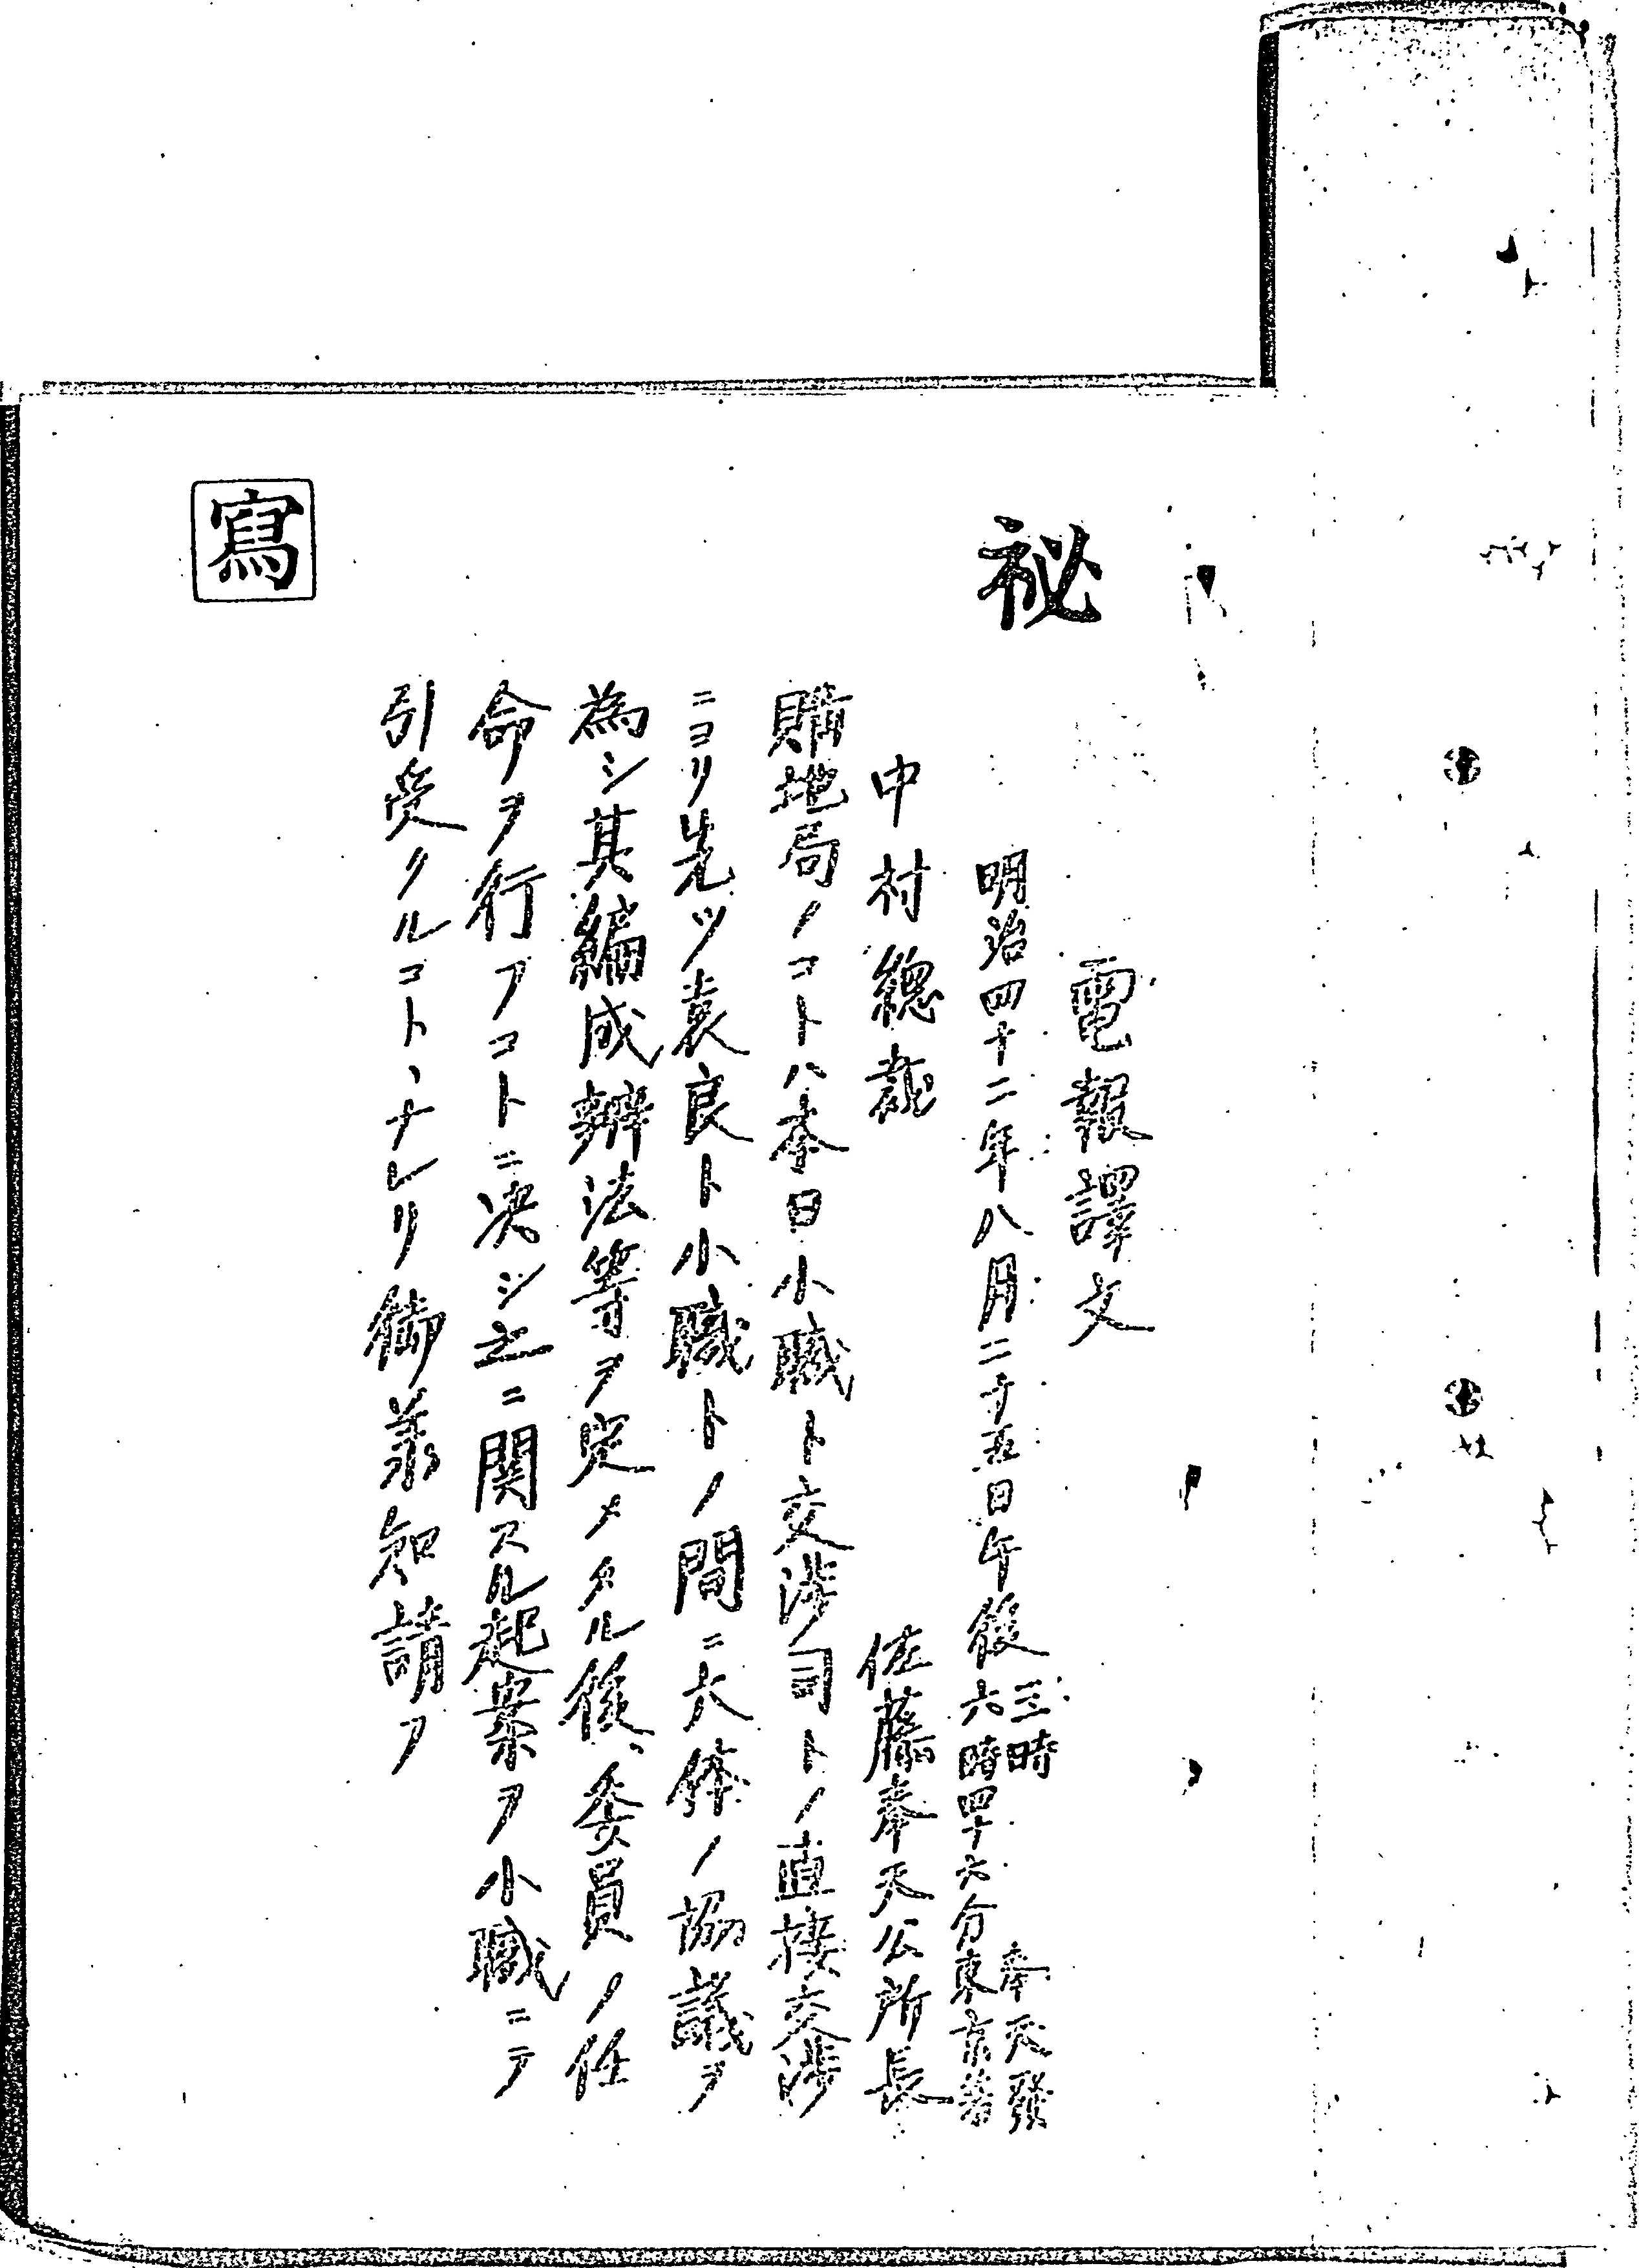 祕
電報譯文
明治四十二年八月二十五日午後三時 奉天發
六時四十六分東京着
中村總裁
佐藤奉天公所長
購地局ノコトハ本日小職ト交渉司トノ直接交渉
ニヨリ先ツ袁良ト小職トノ間ニ大体ノ協議ヲ
為シ其編成辦法等ヲ定メタル後、委員ノ任
命ヲ行フコトニ决シ之ニ関スル起案ヲ小職ニテ
引受クルコトヽナレリ御承知請フ
寫